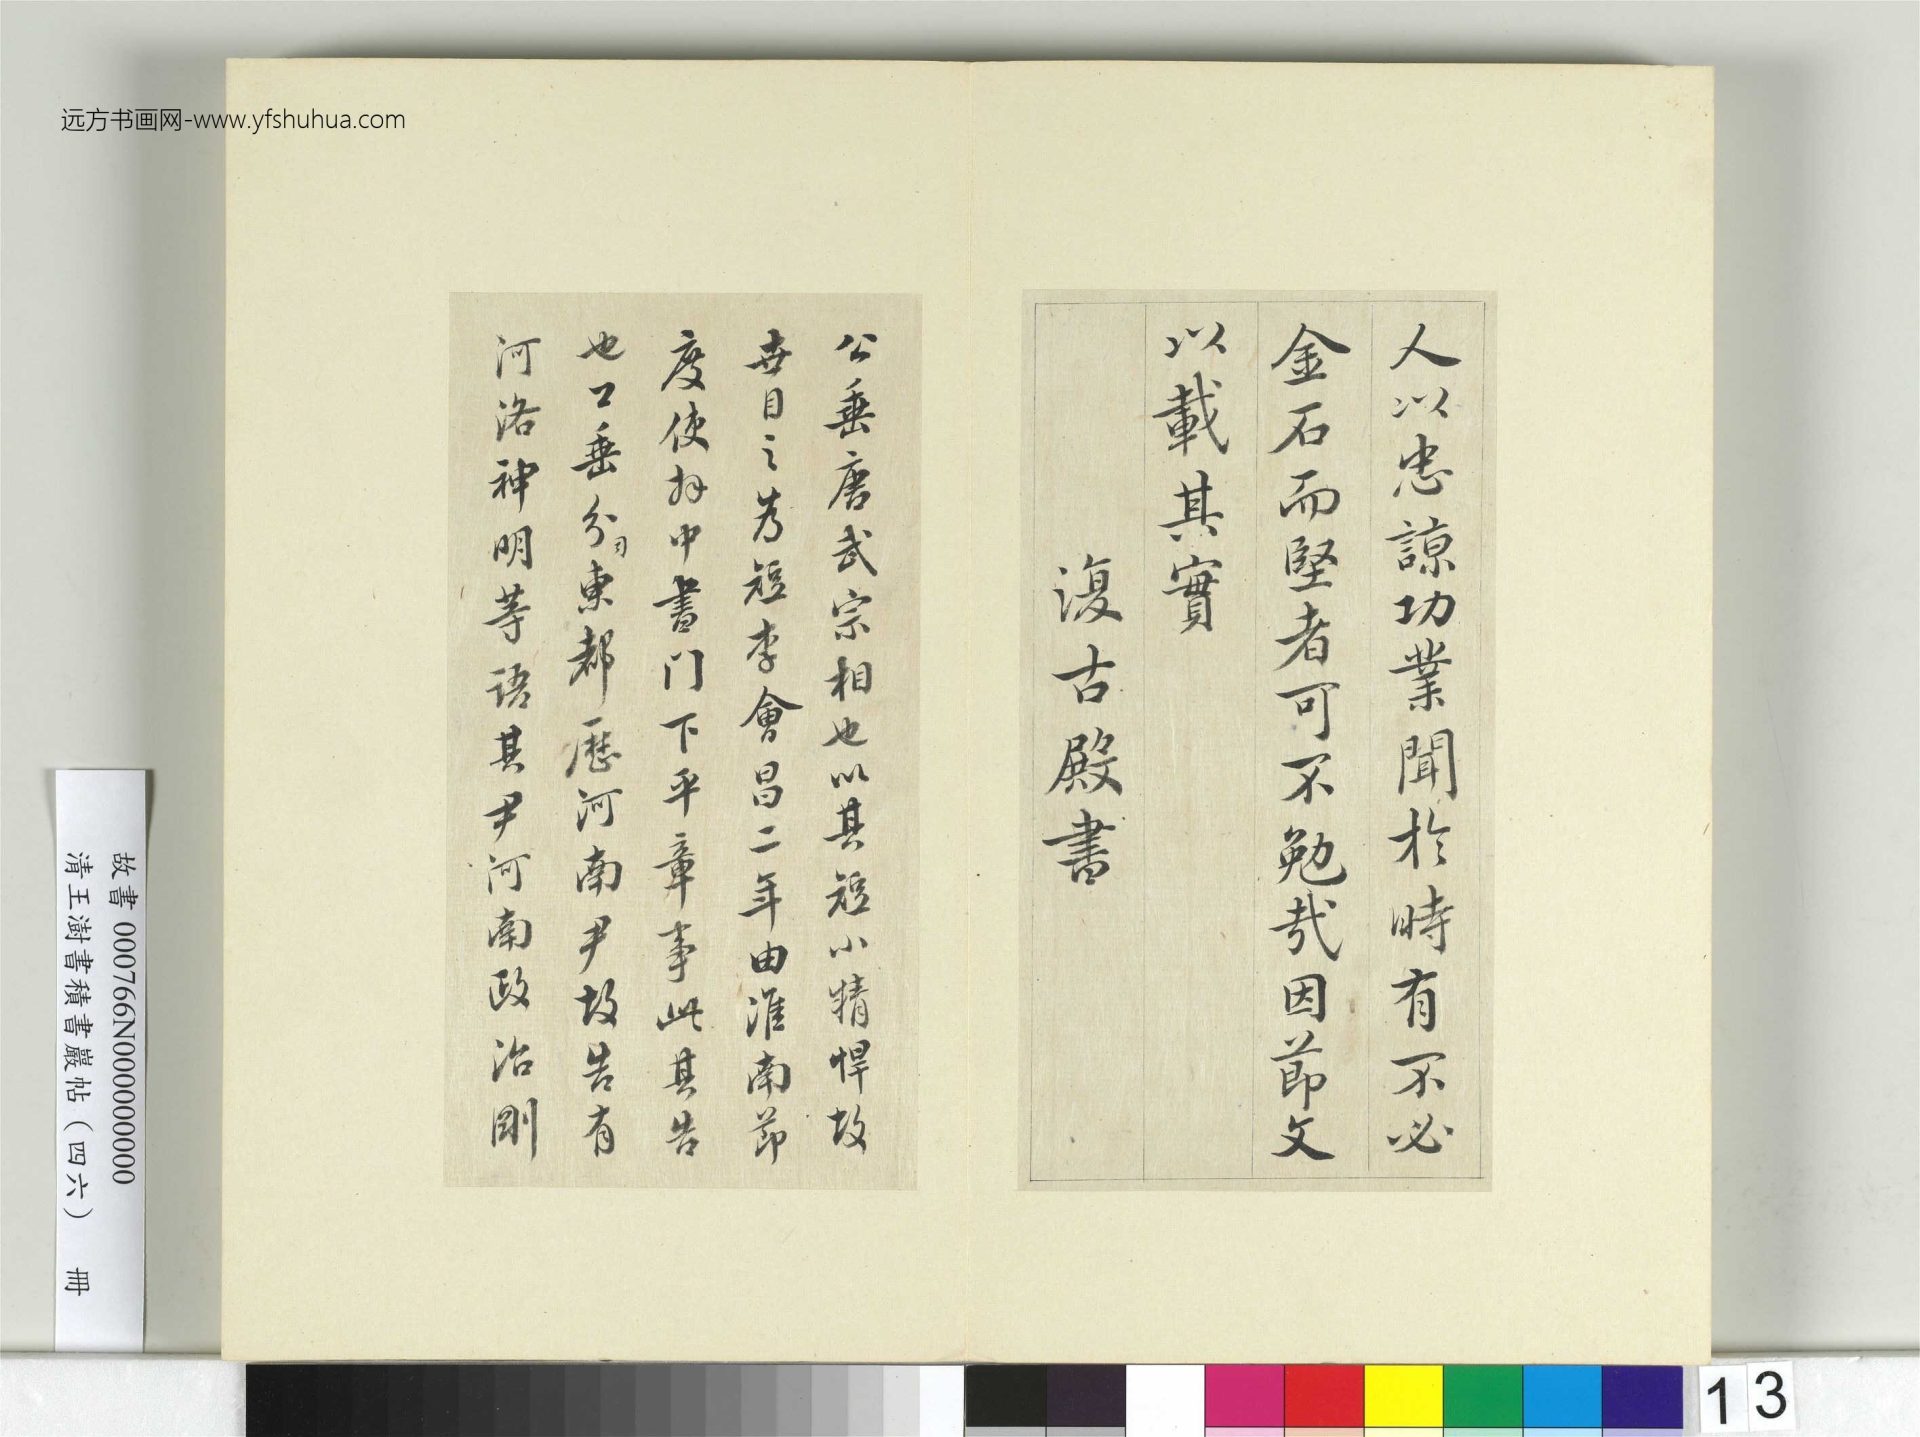 远方书画网-www.yfshuhua.com
人以忠諒功業聞於時有不必
金石而堅者可不勉哉因節文
以載其實
復古殿書
公垂唐武宗相也以其短小精悍故
世目之为短李會昌二年由淮南節
度使拜中書门下平章事此其告
也公垂分司東都歷河南尹故告有
河洛神明等語其尹河南政治剛
故書 000766N000000000
清王澍書積書巖帖（四六） 冊
13